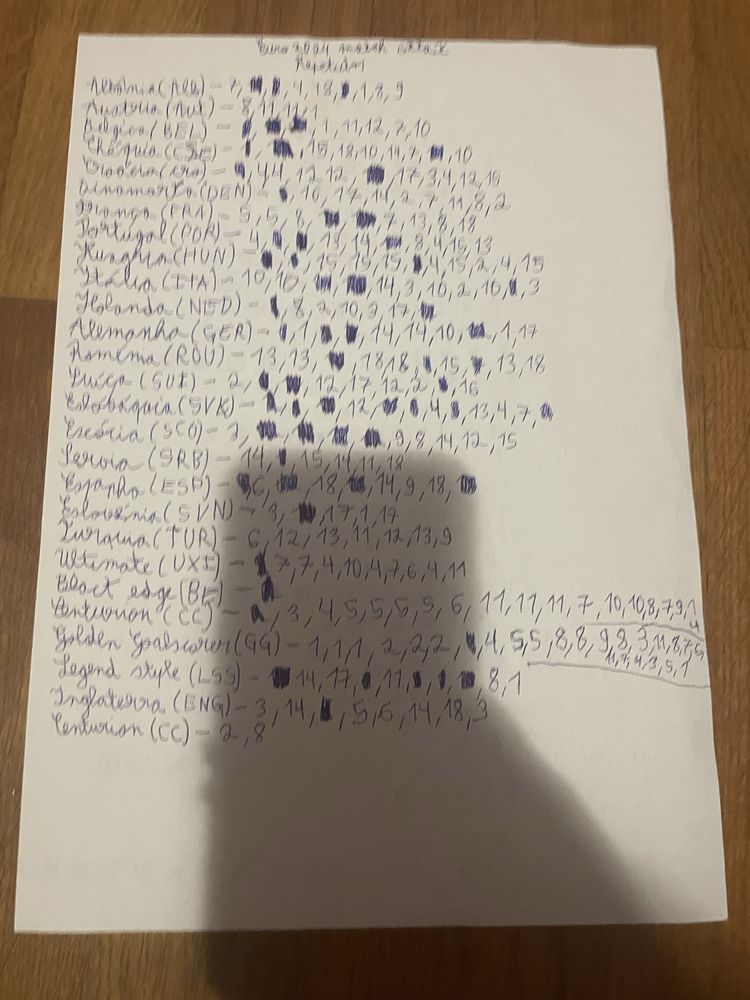 Euro 2024 match attax
Repetidas
Albânia (ALB) - 7, 4, 18, 1, 8, 9
Áustria (AUT) - 8, 11, 11, 1
Bélgica (BEL) - 1, 11, 12, 7, 10
Chéquia (CZE) - 15, 18, 10, 14, 7, 10
Croácia (CRO) - 4, 4, 12, 12, 17, 3, 4, 12, 15
Dinamarca (DEN) - 16, 17, 14, 2, 7, 11, 8, 2
França (FRA) - 5, 5, 8, 7, 13, 8, 18
Portugal (POR) - 4, 13, 14, 8, 4, 15, 13
Hungria (HUN) - 15, 15, 15, 4, 15, 2, 4, 15
Itália (ITA) - 10, 10, 14, 3, 10, 2, 10, 3
Holanda (NED) - 8, 2, 10, 3, 17
Alemanha (GER) - 1, 14, 14, 10, 1, 17
Roménia (ROU) - 13, 13, 18, 18, 15, 13, 18
Suíça (SUI) - 2, 12, 17, 12, 2, 16
Eslováquia (SVK) - 12, 4, 13, 4, 7
Escócia (SCO) - 3, 9, 8, 14, 12, 15
Servia (SRB) - 14, 15, 14, 11, 18
Espanha (ESP) - 6, 18, 14, 9, 18
Eslovénia (SVN) - 3, 17, 1, 17
Turquia (TUR) - 6, 12, 13, 11, 12, 13, 9
Ultimate (UXI) - 7, 7, 4, 10, 4, 7, 6, 4, 11
Black edge (BE) -
Centurion (CC) - 3, 4, 5, 5, 5, 5, 6, 11, 11, 11, 7, 10, 10, 8, 7, 9, 1
4
Golden Goalscorer (GG) - 1, 1, 1, 2, 2, 2, 4, 5, 5, 8, 8, 9, 8, 3, 11, 8, 7, 5
11, 7, 4, 3, 5, 1
Legend style (LSS) - 14, 17, 11, 8, 1
Inglaterra (ENG) - 3, 14, 5, 6, 14, 18, 3
Centurion (CC) - 2, 8